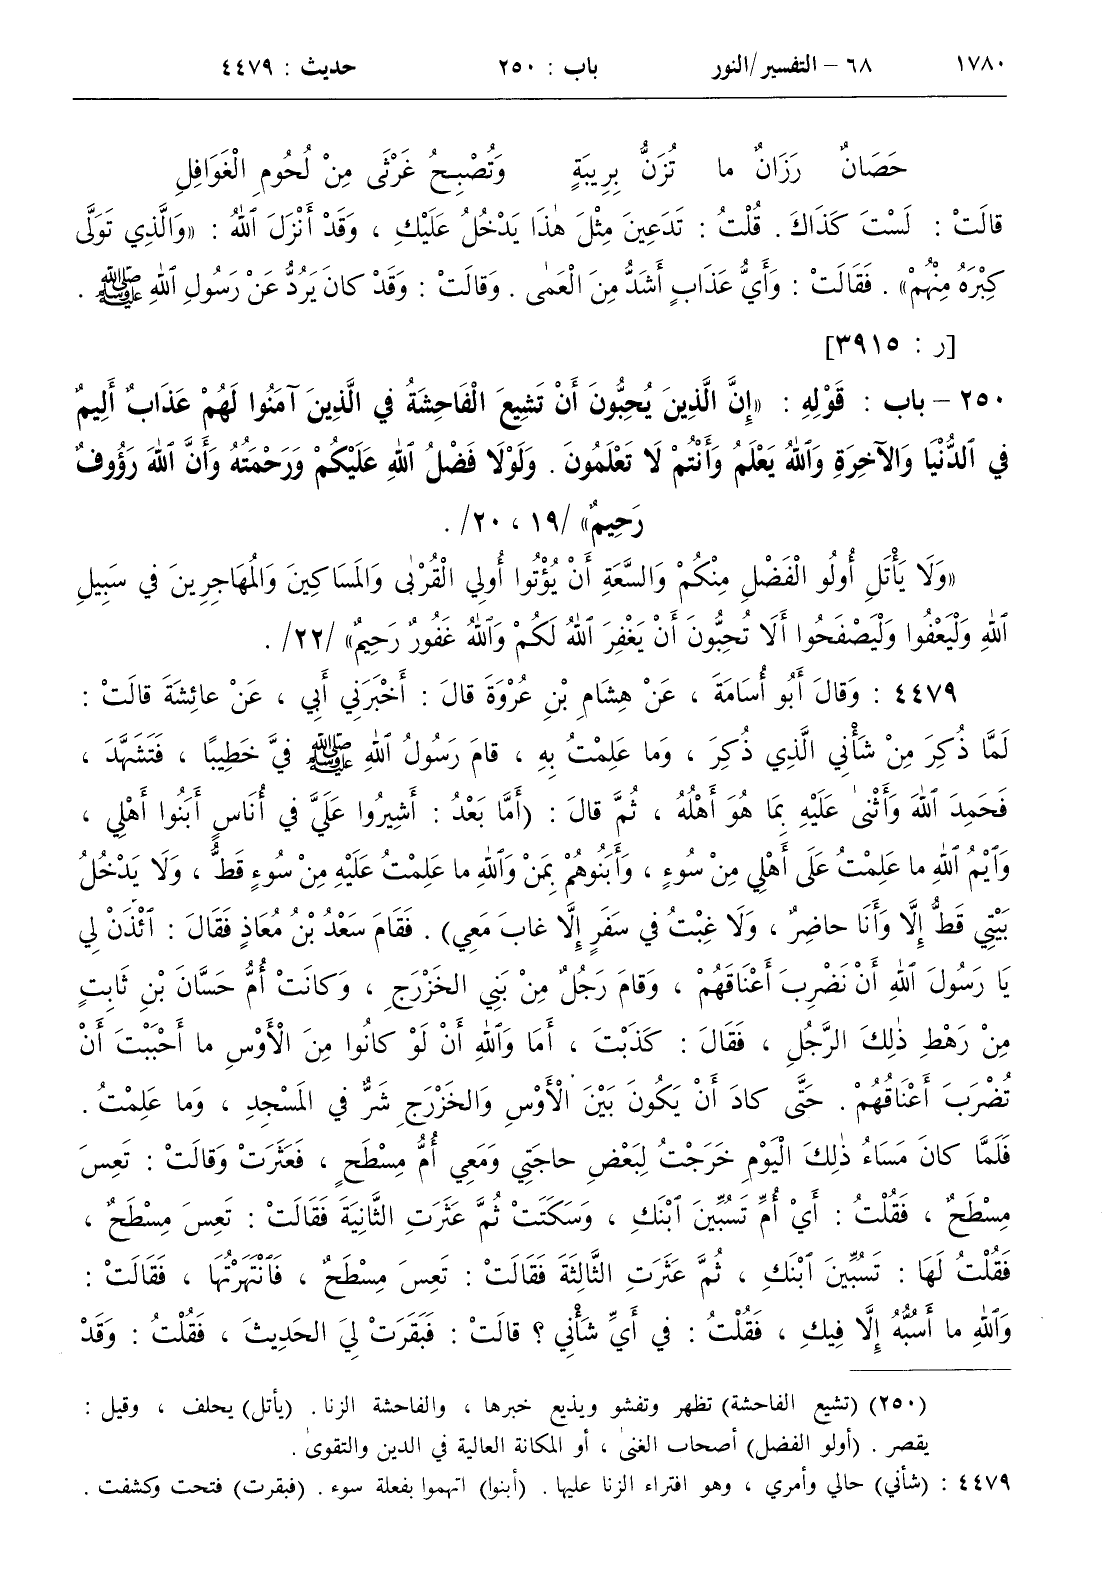 ١٧٨٠ ٦٨ – التفسير/النور باب : ٢٥٠ حديث : ٤٤٧٩
حَصَانٌ رَزَانٌ ما تُزَنُّ بِرِيبَةٍ وَتُصْبِحُ غَرْثَى مِنْ لُحُومِ الْغَوَافِلِ
قالَتْ : لَسْتَ كَذَاكَ . قُلْتُ : تَدَعِينَ مِثْلَ هٰذَا يَدْخُلُ عَلَيْكِ ، وَقَدْ أَنْزَلَ ٱللهُ : «وَالَّذِي تَوَلَّى
كِبْرَهُ مِنْهُمْ» . فَقَالَتْ : وَأَيُّ عَذَابٍ أَشَدُّ مِنَ الْعَمٰى . وَقالَتْ : وَقَدْ كانَ يَرُدُّ عَنْ رَسُولِ ٱللهِ ﷺ .
[ر : ٣٩١٥]
٢٥٠ – باب : قَوْلِهِ : «إِنَّ الَّذِينَ يُحِبُّونَ أَنْ تَشِيعَ الْفَاحِشَةُ فِي الَّذِينَ آمَنُوا لَهُمْ عَذَابٌ أَلِيمٌ
فِي ٱلدُّنْيَا وَالآخِرَةِ وَٱللهُ يَعْلَمُ وَأَنْتُمْ لَا تَعْلَمُونَ . وَلَوْلَا فَضْلُ ٱللهِ عَلَيْكُمْ وَرَحْمَتُهُ وَأَنَّ ٱللهَ رَؤُوفٌ
رَحِيمٌ» /١٩ ، ٢٠/ .
«وَلَا يَأْتَلِ أُولُو الْفَضْلِ مِنْكُمْ وَالسَّعَةِ أَنْ يُؤْتُوا أُولِي الْقُرْبٰى وَالمَسَاكِينَ وَالمُهَاجِرِينَ فِي سَبِيلِ
ٱللهِ وَلْيَعْفُوا وَلْيَصْفَحُوا أَلَا تُحِبُّونَ أَنْ يَغْفِرَ ٱللهُ لَكُمْ وَٱللهُ غَفُورٌ رَحِيمٌ» /٢٢/ .
٤٤٧٩ : وَقالَ أَبُو أُسَامَةَ ، عَنْ هِشَامِ بْنِ عُرْوَةَ قالَ : أَخْبَرَنِي أَبِي ، عَنْ عائِشَةَ قالَتْ :
لَمَّا ذُكِرَ مِنْ شَأْنِي الَّذِي ذُكِرَ ، وَما عَلِمْتُ بِهِ ، قامَ رَسُولُ ٱللهِ ﷺ فِيَّ خَطِيبًا ، فَتَشَهَّدَ ،
فَحَمِدَ ٱللهَ وَأَثْنىٰ عَلَيْهِ بِمَا هُوَ أَهْلُهُ ، ثُمَّ قالَ : (أَمَّا بَعْدُ : أَشِيرُوا عَلَيَّ فِي أُنَاسٍ أَبَنُوا أَهْلِي ،
وَٱيْمُ ٱللهِ ما عَلِمْتُ عَلَى أَهْلِي مِنْ سُوءٍ ، وَأَبَنُوهُمْ بِمَنْ وَٱللهِ ما عَلِمْتُ عَلَيْهِ مِنْ سُوءٍ قَطُّ ، وَلَا يَدْخُلُ
بَيْتِي قَطُّ إِلَّا وَأَنَا حاضِرٌ ، وَلَا غِبْتُ فِي سَفَرٍ إِلَّا غابَ مَعِي) . فَقَامَ سَعْدُ بْنُ مُعَاذٍ فَقَالَ : ٱئْذَنْ لِي
يَا رَسُولَ ٱللهِ أَنْ نَضْرِبَ أَعْنَاقَهُمْ ، وَقامَ رَجُلٌ مِنْ بَنِي الخَزْرَجِ ، وَكانَتْ أُمُّ حَسَّانَ بْنِ ثَابِتٍ
مِنْ رَهْطِ ذٰلِكَ الرَّجُلِ ، فَقَالَ : كَذَبْتَ ، أَمَا وَٱللهِ أَنْ لَوْ كانُوا مِنَ الْأَوْسِ ما أَحْبَبْتَ أَنْ
تُضْرَبَ أَعْنَاقُهُمْ . حَتَّى كادَ أَنْ يَكُونَ بَيْنَ الْأَوْسِ وَالخَزْرَجِ شَرٌّ فِي المَسْجِدِ ، وَما عَلِمْتُ .
فَلَمَّا كانَ مَسَاءُ ذٰلِكَ الْيَوْمِ خَرَجْتُ لِبَعْضِ حاجَتِي وَمَعِي أُمُّ مِسْطَحٍ ، فَعَثَرَتْ وَقالَتْ : تَعِسَ
مِسْطَحٌ ، فَقُلْتُ : أَيْ أُمِّ تَسُبِّينَ ٱبْنَكِ ، وَسَكَتَتْ ثُمَّ عَثَرَتِ الثَّانِيَةَ فَقَالَتْ : تَعِسَ مِسْطَحٌ ،
فَقُلْتُ لَهَا : تَسُبِّينَ ٱبْنَكِ ، ثُمَّ عَثَرَتِ الثَّالِثَةَ فَقَالَتْ : تَعِسَ مِسْطَحٌ ، فَٱنْتَهَرْتُهَا ، فَقَالَتْ :
وَٱللهِ ما أَسُبُّهُ إِلَّا فِيكِ ، فَقُلْتُ : فِي أَيِّ شَأْنِي ؟ قالَتْ : فَبَقَرَتْ لِيَ الحَدِيثَ ، فَقُلْتُ : وَقَدْ
(٢٥٠) (تشيع الفاحشة) تظهر وتفشو ويذيع خبرها ، والفاحشة الزنا . (يأتل) يحلف ، وقيل :
يقصر . (أولو الفضل) أصحاب الغنىٰ ، أو المكانة العالية في الدين والتقوىٰ .
٤٤٧٩ : (شأني) حالي وأمري ، وهو افتراء الزنا عليها . (أبنوا) اتهموا بفعلة سوء . (فبقرت) فتحت وكشفت .